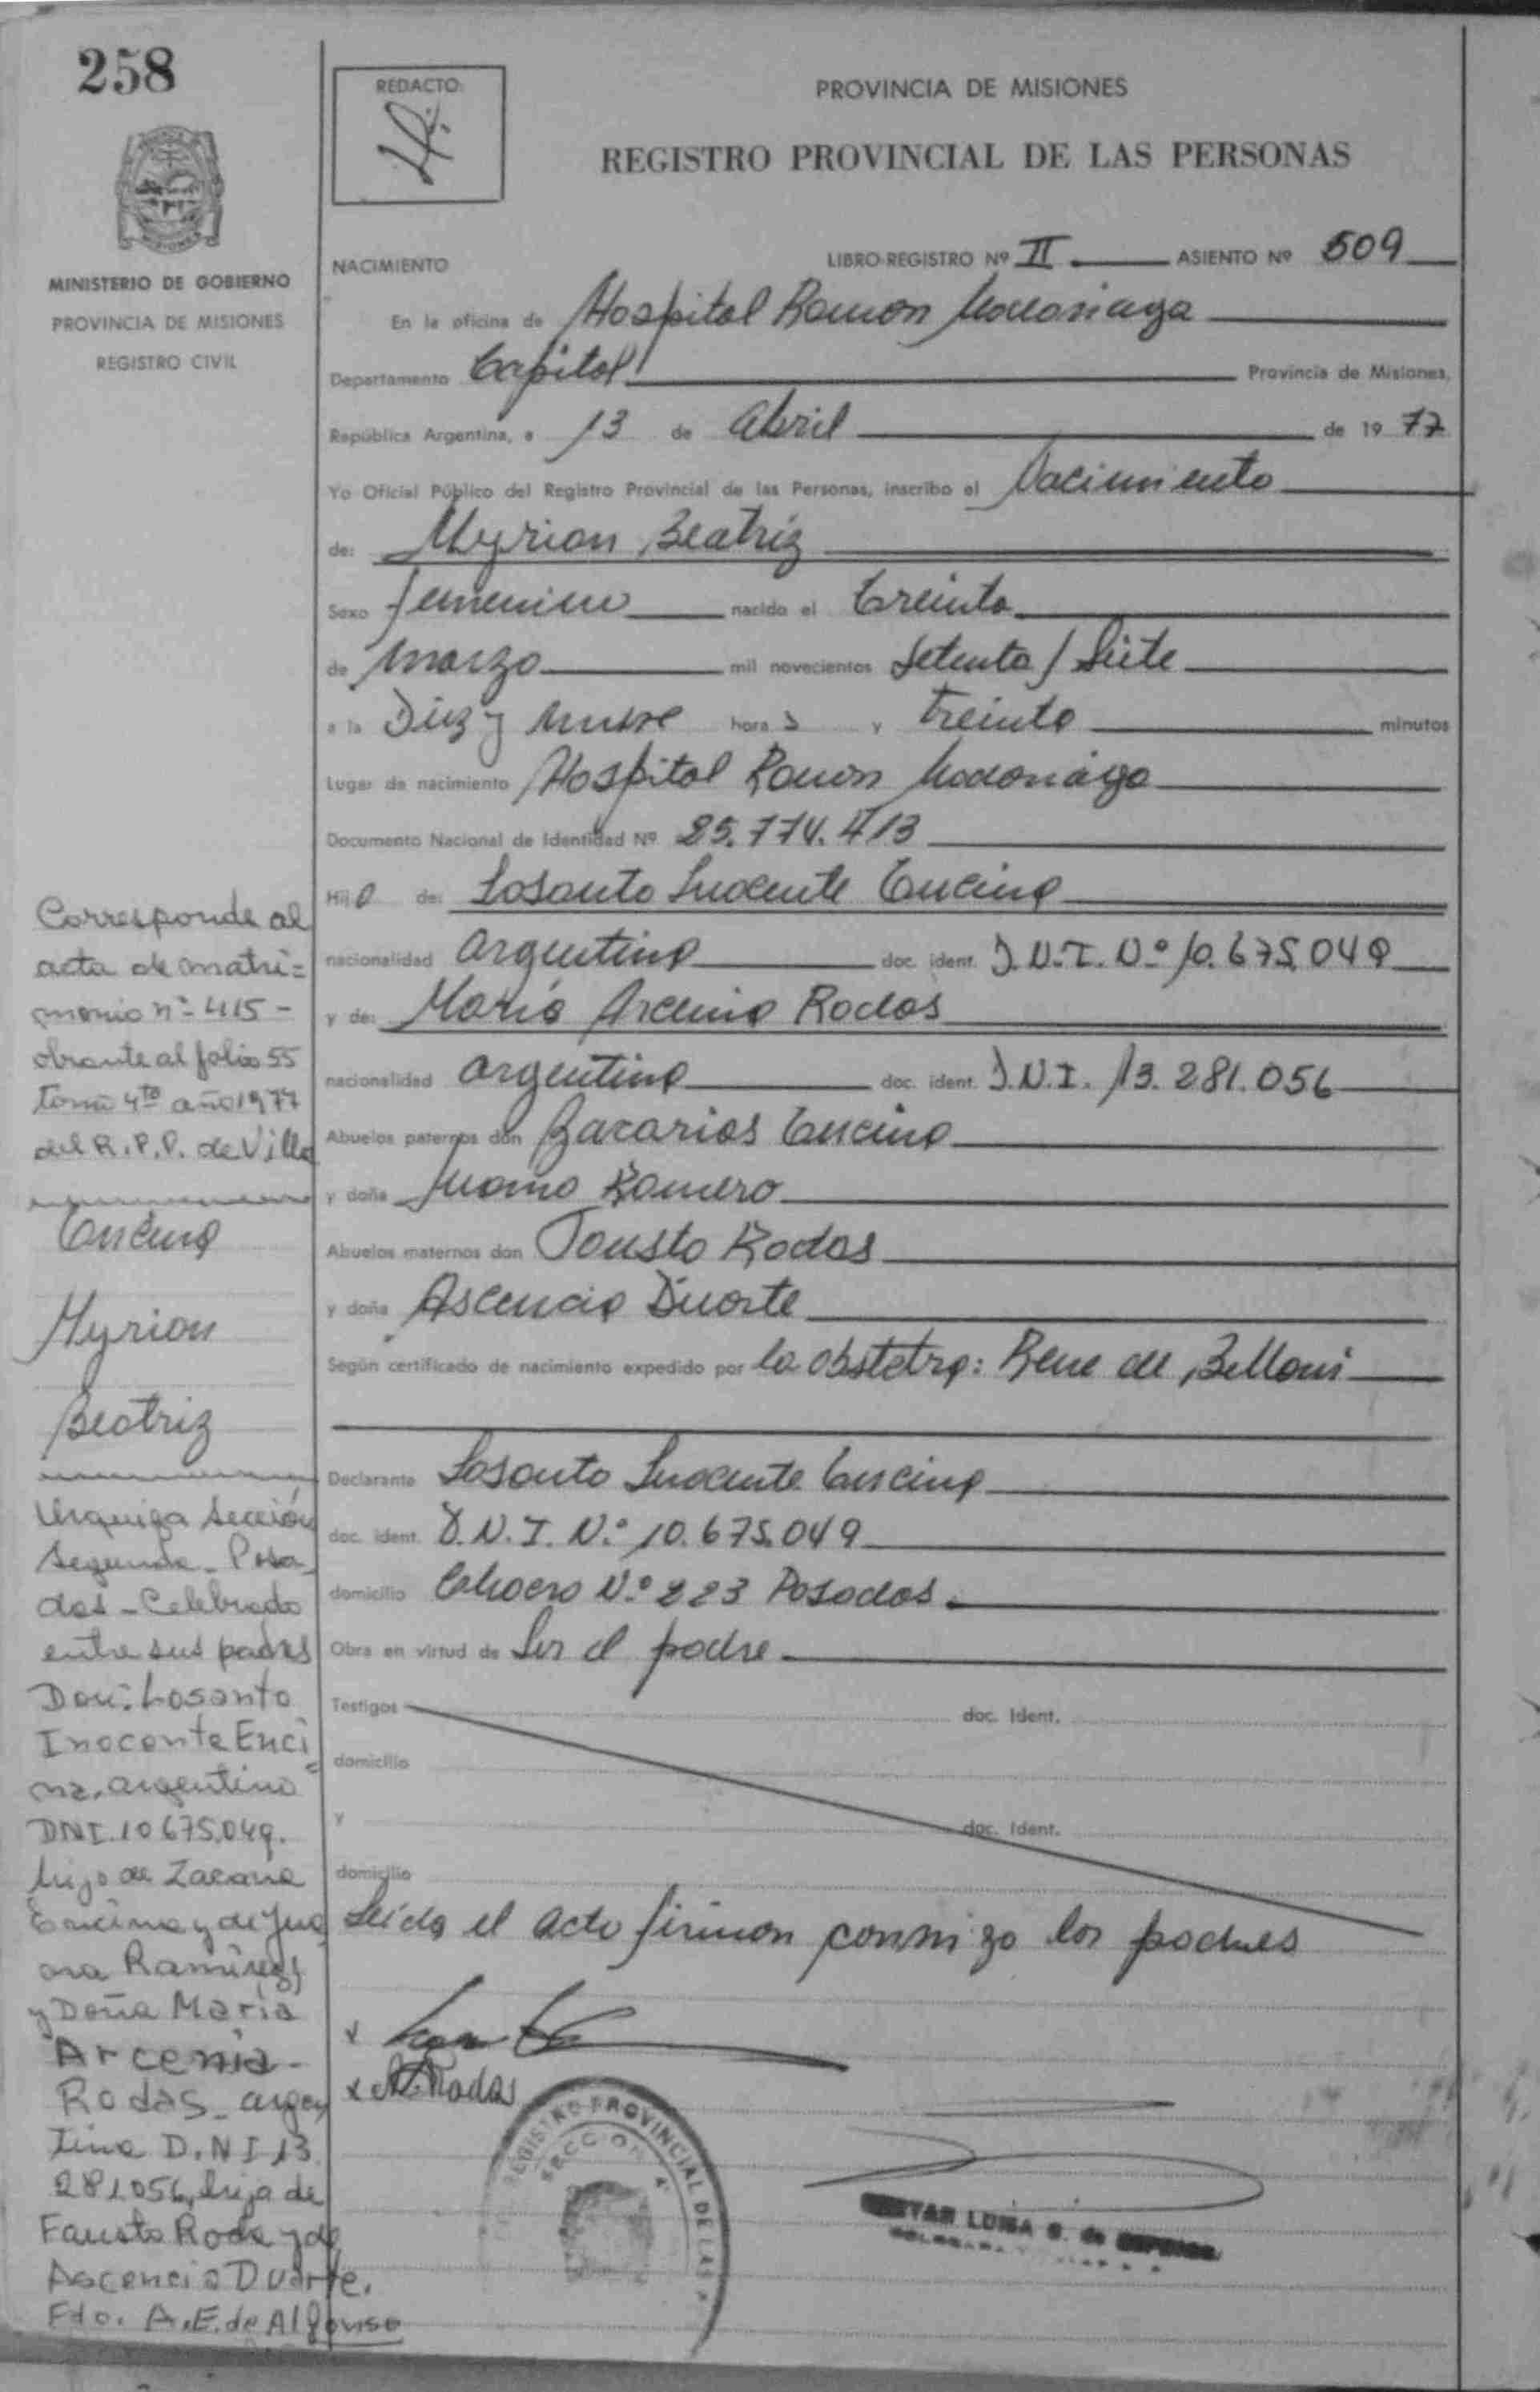 258
MINISTERIO DE GOBIERNO
PROVINCIA DE MISIONES
REGISTRO CIVIL
REDACTO:
PROVINCIA DE MISIONES
REGISTRO PROVINCIAL DE LAS PERSONAS
NACIMIENTO
LIBRO-REGISTRO Nº II ASIENTO Nº 509
En la oficina de Hospital Ramon Madariaga
Departamento Capital Provincia de Misiones,
República Argentina, a 13 de Abril de 19 77
Yo Oficial Público del Registro Provincial de las Personas, inscribo el Nacimiento
de: Myrian Beatriz
Sexo femenino nacido el treinta
de marzo mil novecientos Setenta / Siete
a la Diez y nueve hora s y treinta minutos
Lugar de nacimiento Hospital Ramon Madariaga
Documento Nacional de Identidad Nº 25.774.413
Hija de: Losanto Inocente Encina
nacionalidad argentina doc. ident. D.N.I. Nº 10.675.049
y de: Maria Arcenia Rodas
nacionalidad argentina doc. ident. D.N.I. 13.281.056
Abuelos paternos don Zacarias Encina
y doña Juana Romero
Abuelos maternos don Fausto Rodas
y doña Ascencia Duarte
Según certificado de nacimiento expedido por la obstetra: Rene de Belloni
Declarante Losanto Inocente Encina
doc. ident. D.N.I. Nº 10.675.049
domicilio Nº 223 Posadas
Obra en virtud de Ser el padre
Testigos doc. Ident.
domicilio
y doc. Ident.
domicilio
Leida el acta firman conmigo los padres
A. Rodas
REGISTRO PROVINCIAL DE LAS P
SECCION 4
LUISA S. de
Corresponde al
acta de matri=
monio nº 415 -
obrante al folio 55
tomo 4to año 1977
del R.P.P. de Villa
Encina
Myrian
Beatriz
Urquiza Sección
Segunda - Posa
das - Celebrado
entre sus padres
Don: Losanto
Inocente Enci=
na, argentino
DNI. 10.675.049.
hijo de Zacaria
Encina y de Jua
na Ramirez
y Doña Maria
Arcenia -
Rodas - argen
tina D.N.I 13.
281.056, hija de
Fausto Roda y de
Ascencia Duarte.
Fdo. A.E. de Alfonso